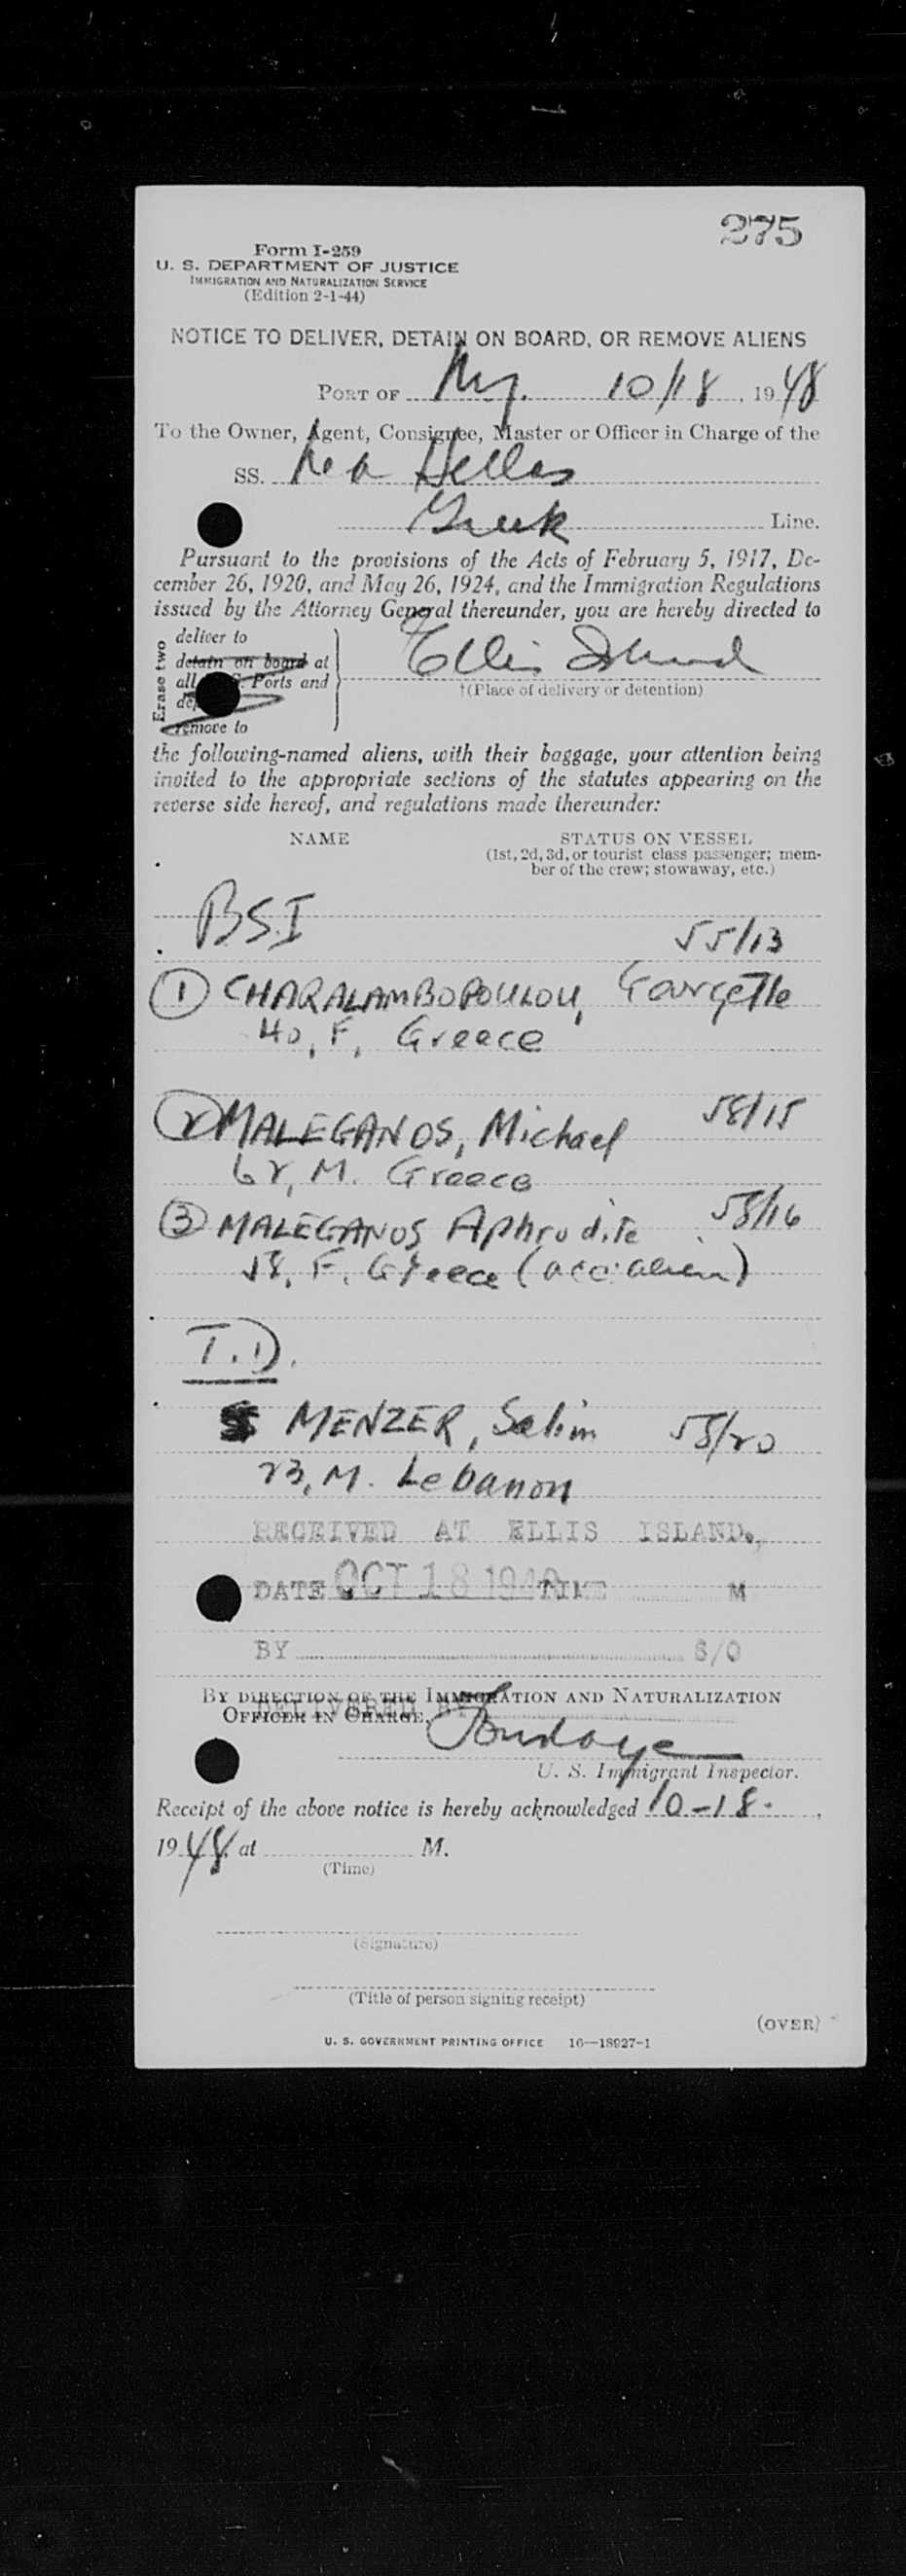 275
Form I-259
U. S. DEPARTMENT OF JUSTICE
IMMIGRATION AND NATURALIZATION SERVICE
(Edition 2-1-44)
NOTICE TO DELIVER, DETAIN ON BOARD, OR REMOVE ALIENS
PORT OF N.Y. 10/18, 1948
To the Owner, Agent, Consignee, Master or Officer in Charge of the
SS. Nea Hellas
Greek Line.
Pursuant to the provisions of the Acts of February 5, 1917, De-
cember 26, 1920, and May 26, 1924, and the Immigration Regulations
issued by the Attorney General thereunder, you are hereby directed to
Erase two
deliver to
detain on board at
all Ports and
remove to
Ellis Island
†(Place of delivery or detention)
the following-named aliens, with their baggage, your attention being
invited to the appropriate sections of the statutes appearing on the
reverse side hereof, and regulations made thereunder:
NAME STATUS ON VESSEL
(1st, 2d, 3d, or tourist class passenger; mem-
ber of the crew; stowaway, etc.)
BSI
55/13
① CHARALAMBOPOULOU, Georgette
40, F, Greece
② MALEGANOS, Michael 58/15
62, M. Greece
③ MALEGANOS Aphrodite 58/16
58, F. Greece (acc. alien)
T.D.
MENZER, Selim 58/20
23, M. Lebanon
RECEIVED AT ELLIS ISLAND,
DATE OCT 18 1948 TIME M
BY S/O
BY DIRECTION OF THE IMMIGRATION AND NATURALIZATION
OFFICER IN CHARGE.
DELIVERED BY
U. S. Immigrant Inspector.
Receipt of the above notice is hereby acknowledged 10-18-,
1948 at M.
(Time)
(Signature)
(Title of person signing receipt)
(OVER)
U. S. GOVERNMENT PRINTING OFFICE 16—18927-1